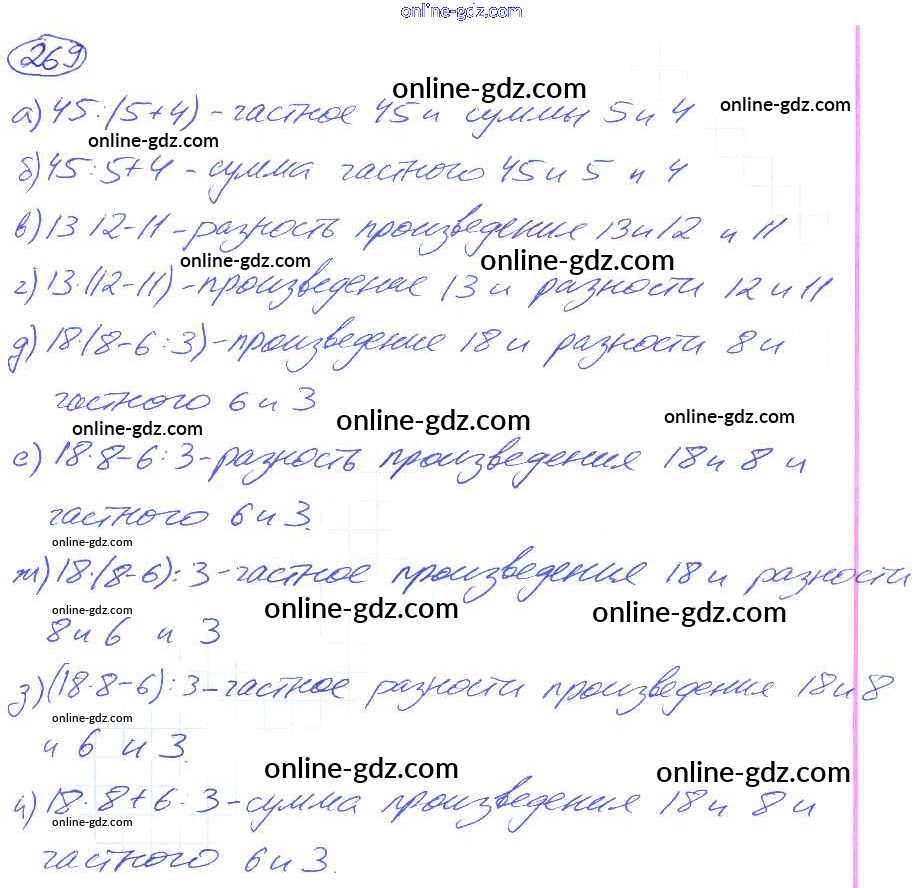 online-gdz.com
269
online-gdz.com
online-gdz.com
а) 45:(5+4) - частное 45 и суммы 5 и 4
online-gdz.com
б) 45:5+4 - сумма частного 45 и 5 и 4
в) 13 12-11 - разность произведения 13 и 12 и 11
online-gdz.com
online-gdz.com
г) 13·(12-11) - произведение 13 и разности 12 и 11
д) 18·(8-6:3) - произведение 18 и разности 8 и
частного 6 и 3
online-gdz.com
online-gdz.com
online-gdz.com
е) 18·8-6:3 - разность произведения 18 и 8 и
частного 6 и 3.
online-gdz.com
ж) 18·(8-6):3 - частное произведения 18 и разности
online-gdz.com
online-gdz.com
online-gdz.com
8 и 6 и 3
з) (18·8-6):3 - частное разности произведения 18 и 8
online-gdz.com
и 6 и 3.
online-gdz.com
online-gdz.com
и) 18·8+6:3 - сумма произведения 18 и 8 и
online-gdz.com
частного 6 и 3.